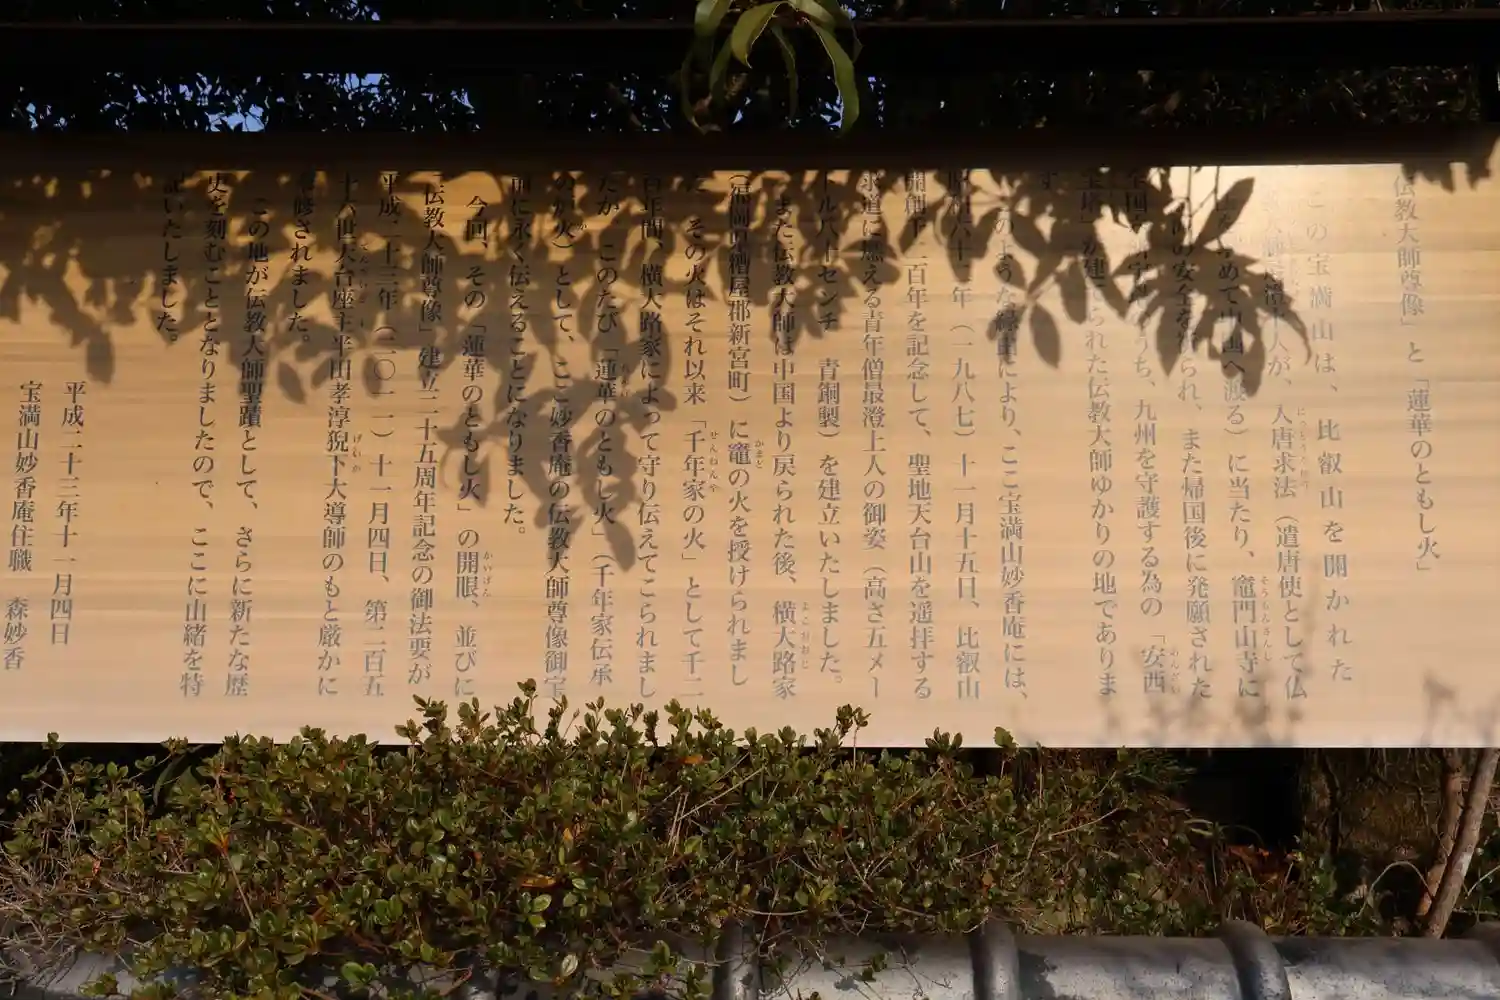 伝教大師尊像」と「蓮華のともし火」
この宝満山は、比叡山を開かれた
人が、入唐求法（遣唐使として仏
めて中国へ渡る）に当たり、竈門山寺に
の安全を られ、また帰国後に発願された
全国 うち、九州を守護する為の「安西
宝塔」が建 られた伝教大師ゆかりの地でありま
す
のような縁由により、ここ宝満山妙香庵には、
昭和六十二年（一九八七）十一月十五日、比叡山
開創千二百年を記念して、聖地天台山を遥拝する
求道に燃える青年僧最澄上人の御姿（高さ五メー
トル八十センチ　青銅製）を建立いたしました。
また伝教大師は中国より戻られた後、横大路家
（福岡県糟屋郡新宮町）に竈の火を授けられまし
た　その火はそれ以来「千年家の火」として千二
百年間、横大路家によって守り伝えてこられまし
たが　このたび「蓮華のともし火」（千年家伝承
のか火）として、ここ妙香庵の伝教大師尊像御宝
前に永く伝えることになりました。
今回、その「蓮華のともし火」の開眼、並びに
「伝教大師尊像」建立二十五周年記念の御法要が
平成二十三年（二〇一一）十一月四日、第二百五
十六世天台座主半田孝淳猊下大導師のもと厳かに
修されました。
この地が伝教大師聖蹟として、さらに新たな歴
史を刻むこととなりましたので、ここに由緒を特
記いたしました。
平成二十三年十一月四日
宝満山妙香庵住職　森妙香